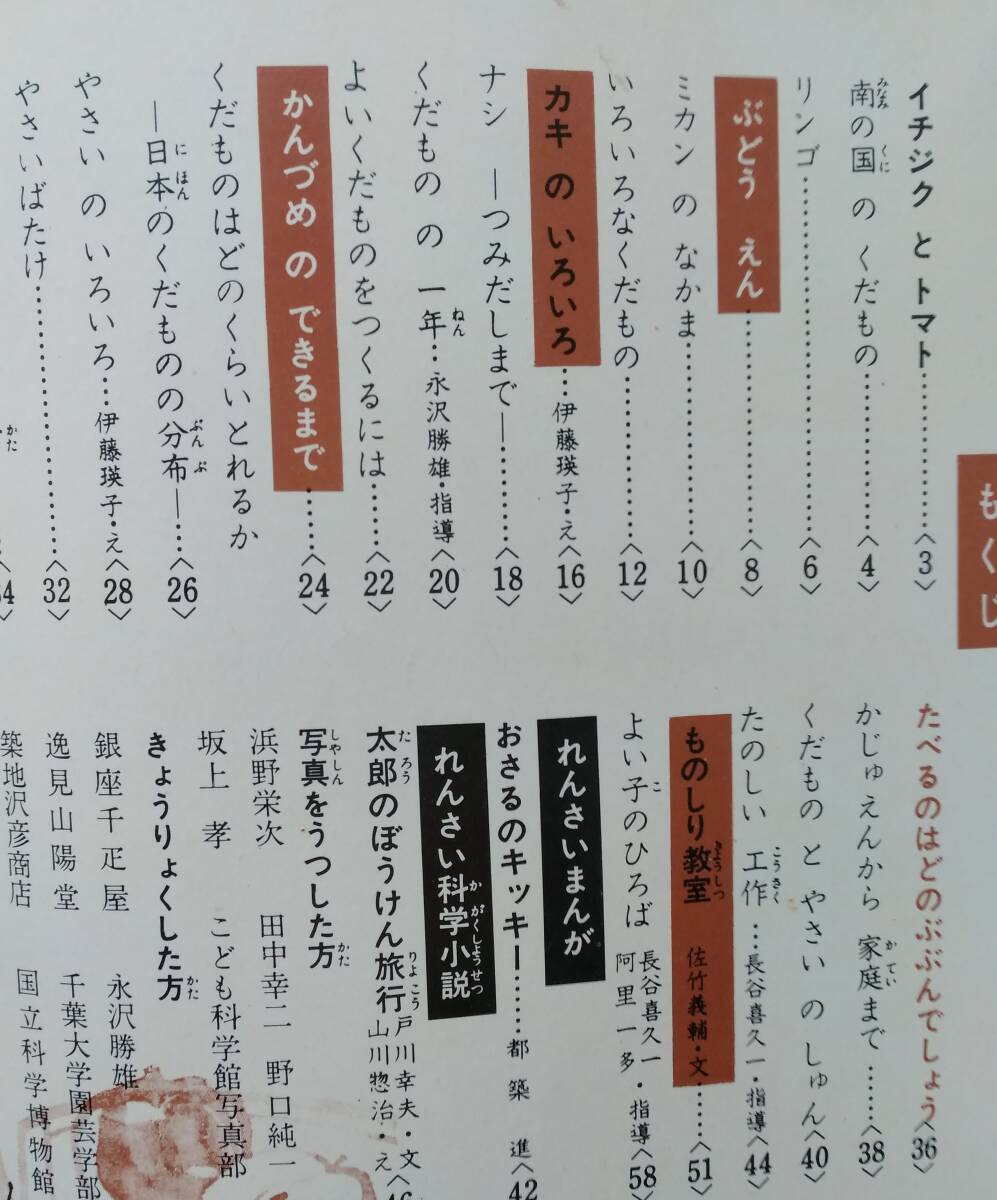 もくじ
イチジク と トマト…………〈3〉
南の国 の くだもの…………〈4〉
リンゴ…………〈6〉
ぶどう えん…………〈8〉
ミカン の なかま…………〈10〉
いろいろなくだもの…………〈12〉
カキ の いろいろ…伊藤瑛子・え〈16〉
ナシ ―つみだしまで―…………〈18〉
くだもの の 一年…永沢勝雄・指導〈20〉
よいくだものをつくるには……〈22〉
かんづめ の できるまで……〈24〉
くだものはどのくらいとれるか
―日本のくだものの分布―…〈26〉
やさい の いろいろ…伊藤瑛子・え〈28〉
やさいばたけ…………〈32〉
たべるのはどのぶぶんでしょう〈36〉
かじゅえんから 家庭まで……〈38〉
くだもの と やさい の しゅん〈40〉
たのしい 工作…長谷喜久一・指導〈44〉
ものしり教室 佐竹義輔・文……〈51〉
よい子のひろば 長谷喜久一 阿里一多・指導〈58〉
れんさいまんが
おさるのキッキー……都築 進〈42〉
れんさい科学小説
太郎のぼうけん旅行 戸川幸夫・文 山川惣治・え〈46〉
写真をうつした方
浜野栄次 田中幸二 野口純一
坂上 孝 こども科学館写真部
きょうりょくした方
銀座千疋屋 永沢勝雄
逸見山陽堂 千葉大学園芸学部
築地沢彦商店 国立科学博物館